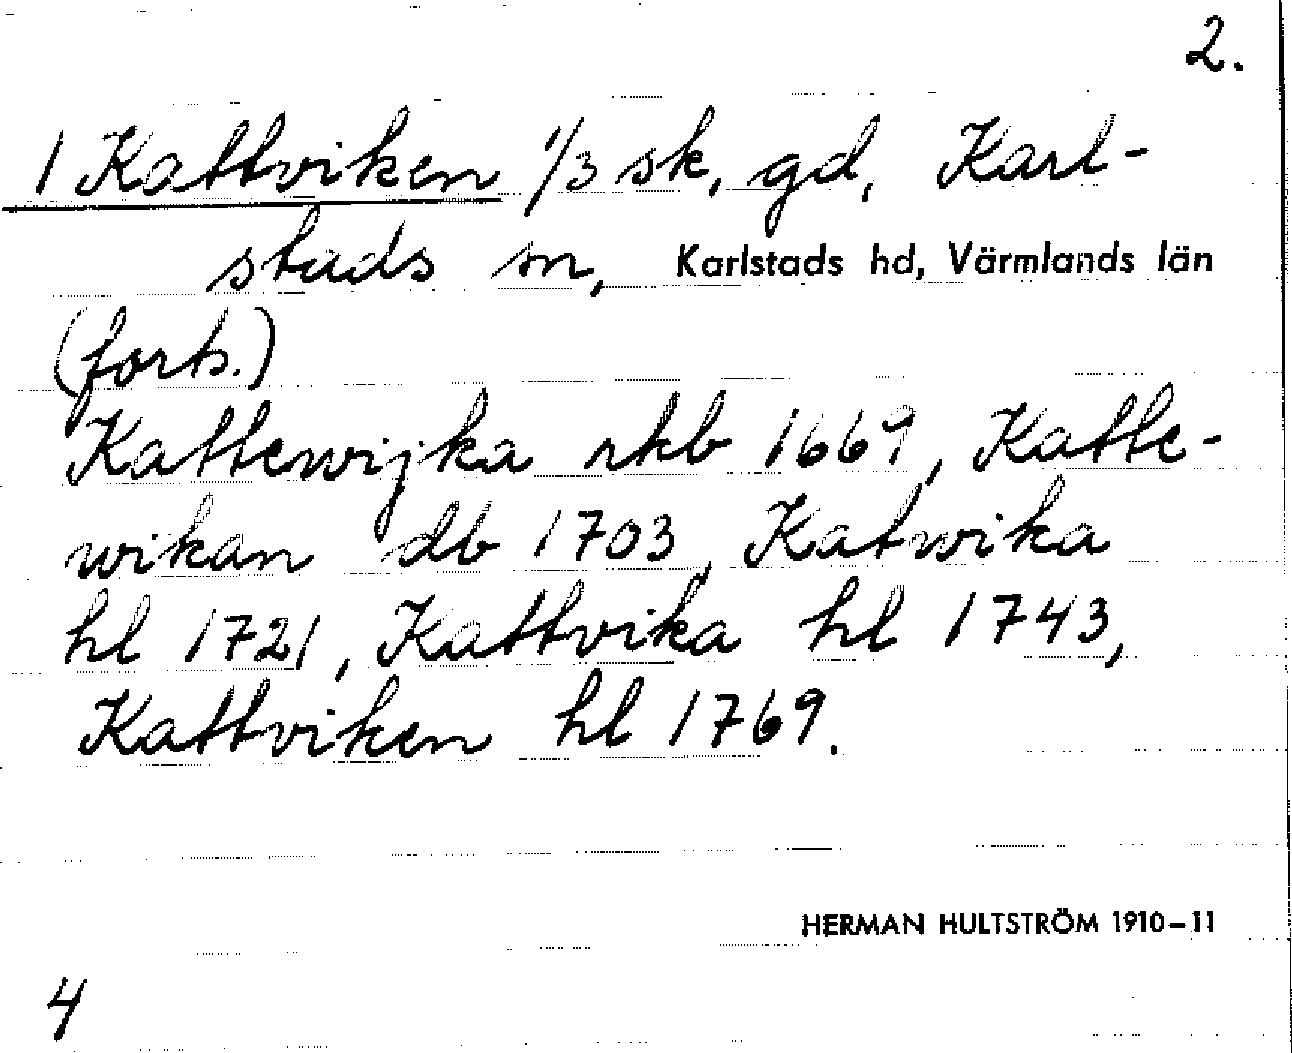 2.
1 Kattviken 1/3 sk, gd, Karl-
stads sn, Karlstads hd, Värmlands län
(forts.)
Kattewijka rkb 1669, Katte-
wikan db 1703, Katwika
hl 1721, Kattvika hl 1743,
Kattviken hl 1769.
HERMAN HULTSTRÖM 1910–11
4